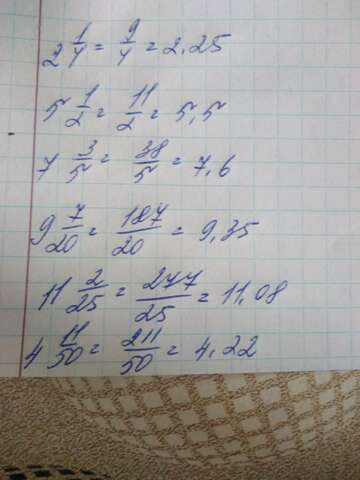 2 1/4 = 9/4 = 2,25
5 1/2 = 11/2 = 5,5
7 3/5 = 38/5 = 7,6
9 7/20 = 187/20 = 9,35
11 2/25 = 277/25 = 11,08
4 11/50 = 211/50 = 4,22